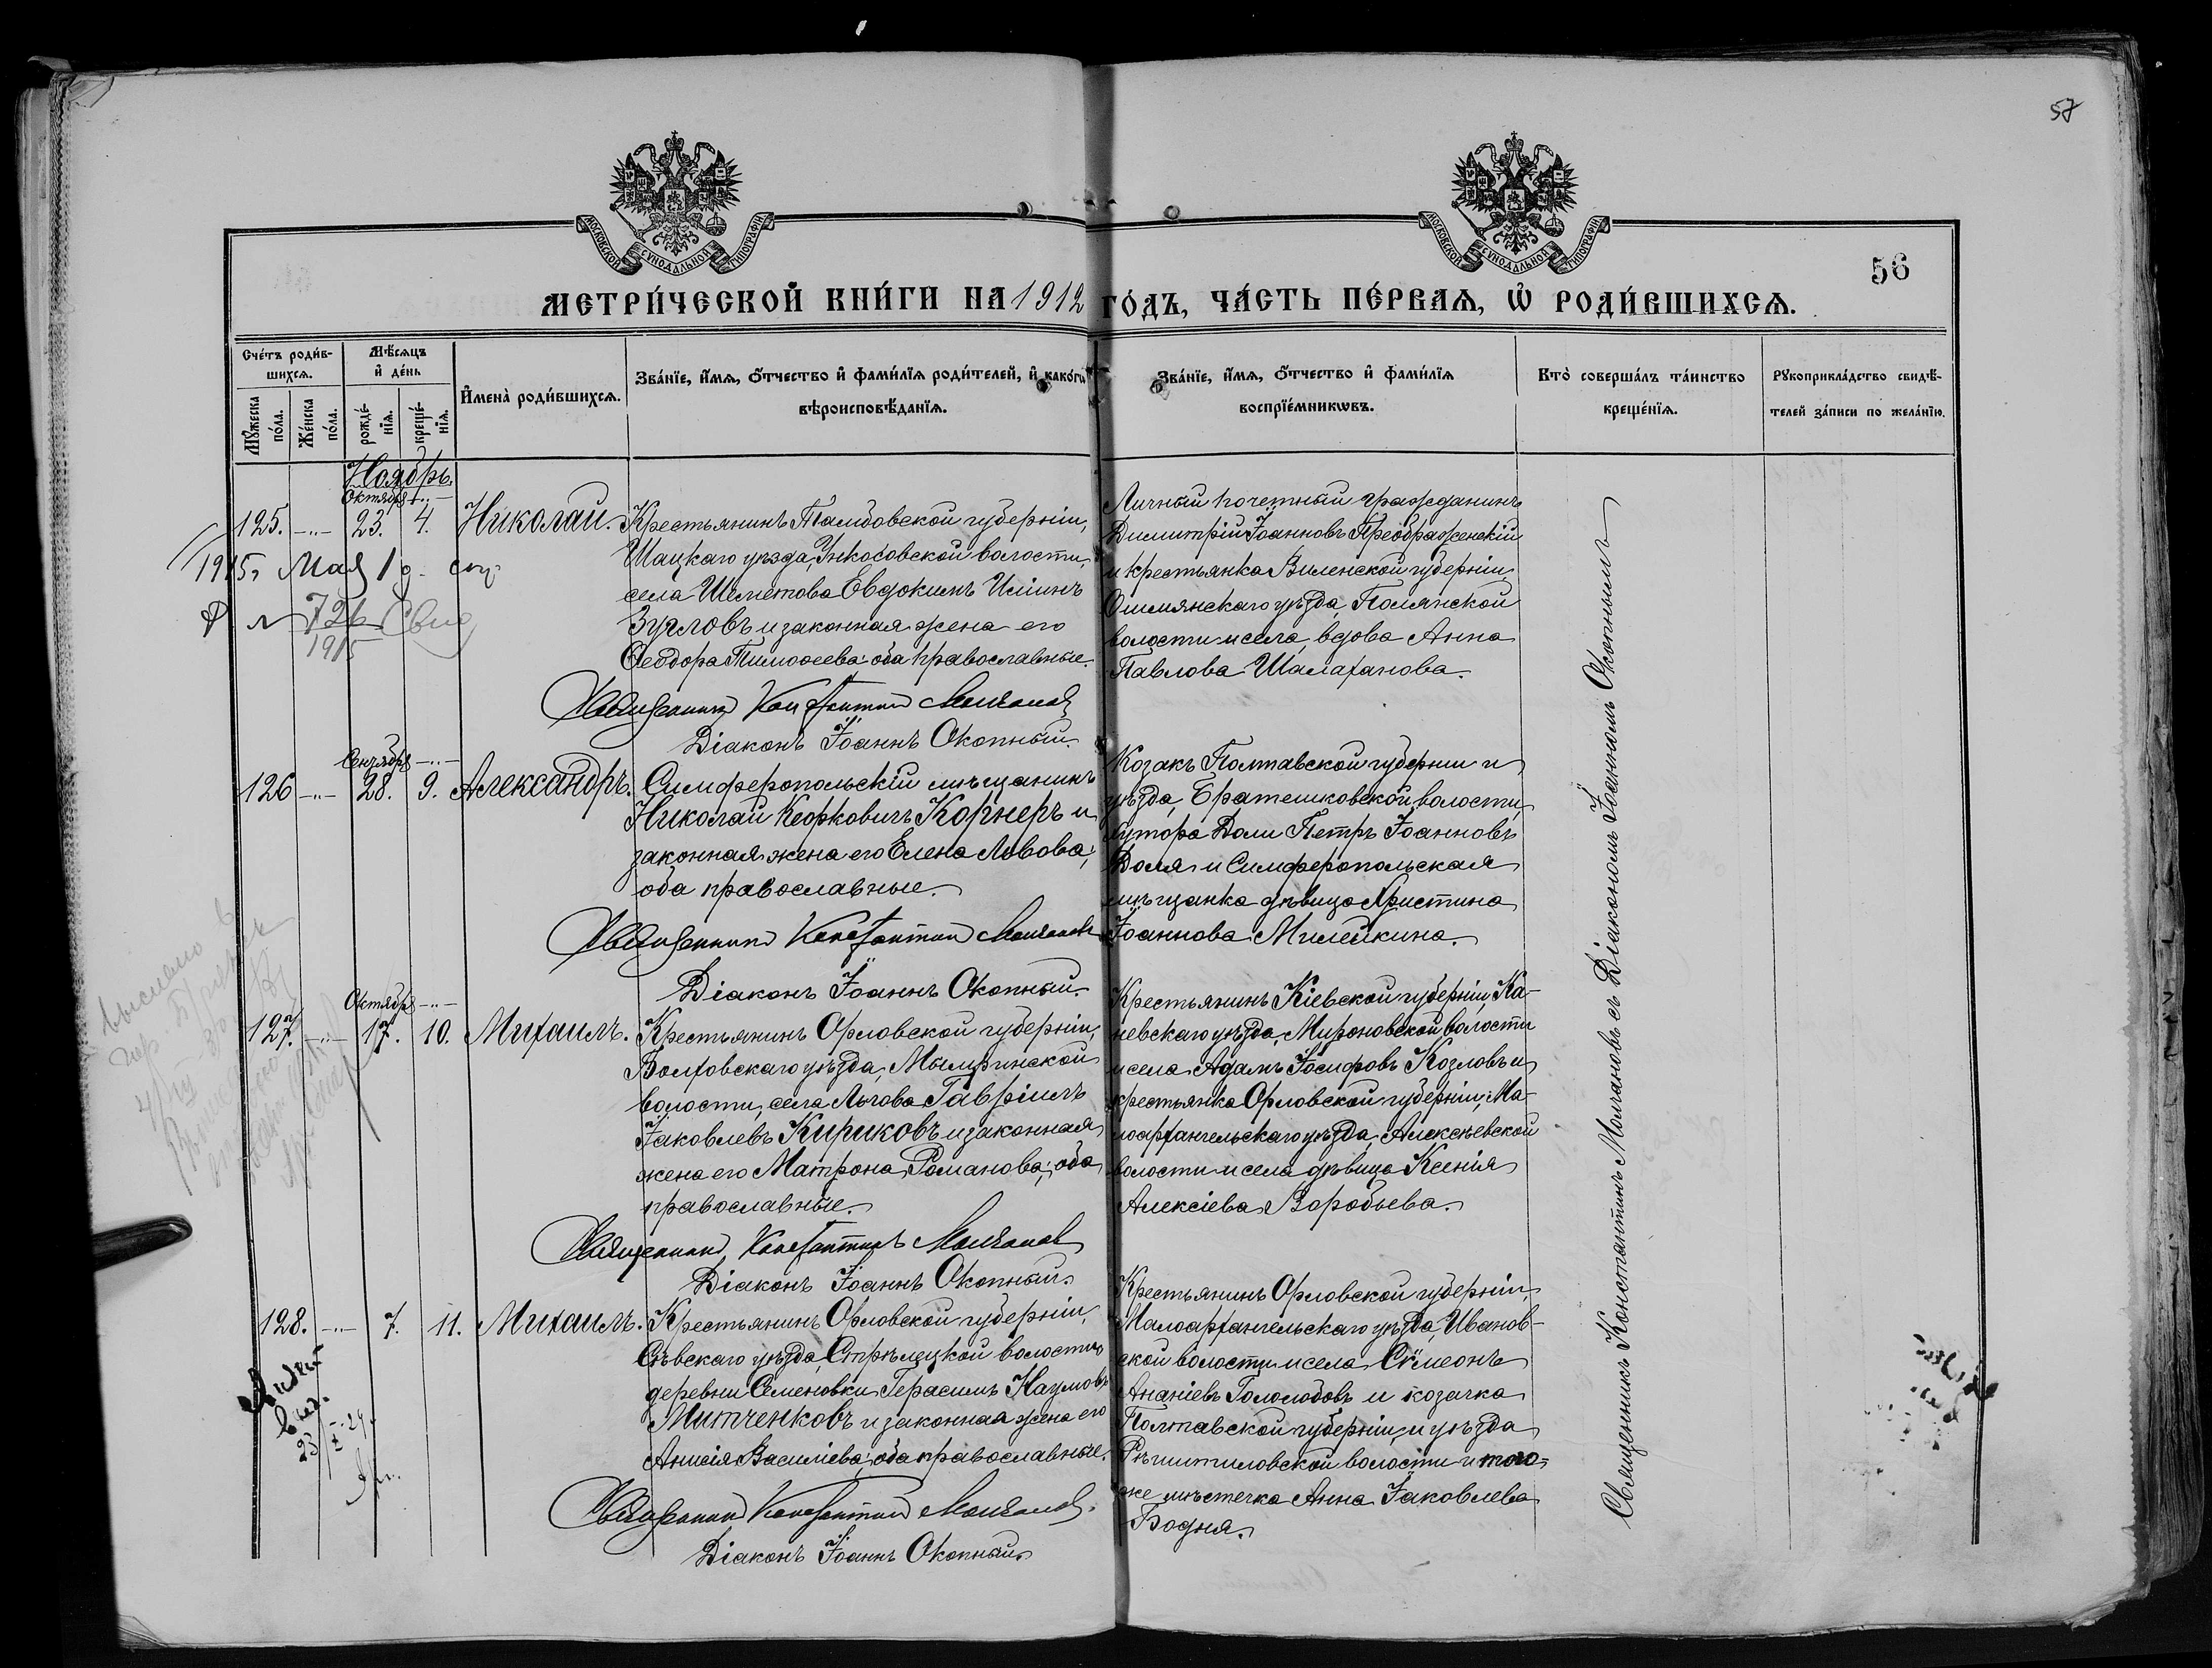 57
56
МОСКОВСКОЙ СѴНОДАЛЬНОЙ ТИПОГРАФІИ
МОСКОВСКОЙ СѴНОДАЛЬНОЙ ТИПОГРАФІИ
МЕТРИ́ЧЕСКОЙ КНИ́ГИ НА 1912 ГО́ДЪ, ЧА́СТЬ ПЕ́РВАѦ, Ѽ РОДИ́ВШИХСѦ.
Сче́тъ роди́в-
шихсѧ.
Мꙋ́жеска по́ла.
Же́нска по́ла.
Мѣ́сѧцъ
и҆ де́нь
рожде́-
нїѧ.
креще́-
нїѧ.
И҆мена̀ роди́вшихсѧ.
Зва́нїе, и҆́мѧ, ѻ҆́тчество и҆ фами́лїѧ роди́телей, и҆ како́гѡ
вѣроисповѣ́данїѧ.
Зва́нїе, и҆́мѧ, ѻ҆́тчество и҆ фами́лїѧ
воспрїе́мникѡвъ.
Кто̀ соверша́лъ та́инство
креще́нїѧ.
Рꙋкоприкла́дство свидѣ́-
телей за́писи по жела́нїю.
Ноябрь.
Октября -"-
125. -"- 23. 4. Николай.
Крестьянинъ Тамбовской губерніи,
Шацкаго уѣзда, Ункосовской волости,
села Шеметова Евдокимъ Иліинъ
Зугловъ и законная жена его
Ѳеодора Тимоѳеева: оба православные.
Священникъ Константинъ Молчановъ
Діаконъ Іоаннъ Окопный.
Личный почетный гражданинъ
Димитрій Іоанновъ Преображенскій
и крестьянка Виленской губерніи,
Ошмянскаго уѣзда, Полянской
волости и села, вдова Анна
Павлова Шалаханова.
1915 Мая 1 д.
726
1915
Сентября -"-
126 -"- 28. 9. Александръ.
Симферопольскій мѣщанинъ
Николай Кеорковичъ Корнеръ и
законная жена его Елена Львова,
оба православные.
Священникъ Константинъ Молчановъ
Діаконъ Іоаннъ Окопный.
Козакъ Полтавской губерніи и
уѣзда, Братешковской волости,
хутора Доли Петръ Іоанновъ
Доля и Симферопольская
мѣщанка дѣвица Христина
Іоаннова Милейкина.
Октября -"-
127. -"- 17. 10. Михаилъ.
Крестьянинъ Орловской губерніи,
Болховскаго уѣзда, Мымринской
волости, села Льгова Гавріилъ
Іаковлевъ Кириковъ и законная
жена его Матрона Романова; оба
православные.
Священникъ Константинъ Молчановъ
Діаконъ Іоаннъ Окопный.
Крестьянинъ Кіевской губерніи, Ка-
невскаго уѣзда, Мироновской волости
и села Адамъ Іосифовъ Козловъ и
крестьянка Орловской губерніи, Ма-
лоархангельскаго уѣзда, Алексѣевской
волости и села дѣвица Ксенія
Алексіева Воробьева.
128. -"- 7. 11. Михаилъ.
Крестьянинъ Орловской губерніи,
Сѣвскаго уѣзда, Стрѣлецкой волости,
деревни Семеновки Герасимъ Наумовъ
Митченковъ и законная жена его
Анисія Василіева; оба православные.
Священникъ Константинъ Молчановъ.
Діаконъ Іоаннъ Окопный.
Крестьянинъ Орловской губерніи,
Малоархангельскаго уѣзда, Иванов-
ской волости и села Сѵмеонъ
Ананіевъ Гололобовъ и козачка
Полтавской губерніи и уѣзда
Рѣшетиловской волости и того-
же мѣстечка Анна Іаковлева
Бодня.
Священникъ Константинъ Молчановъ съ Діакономъ Іоанномъ Окопнымъ